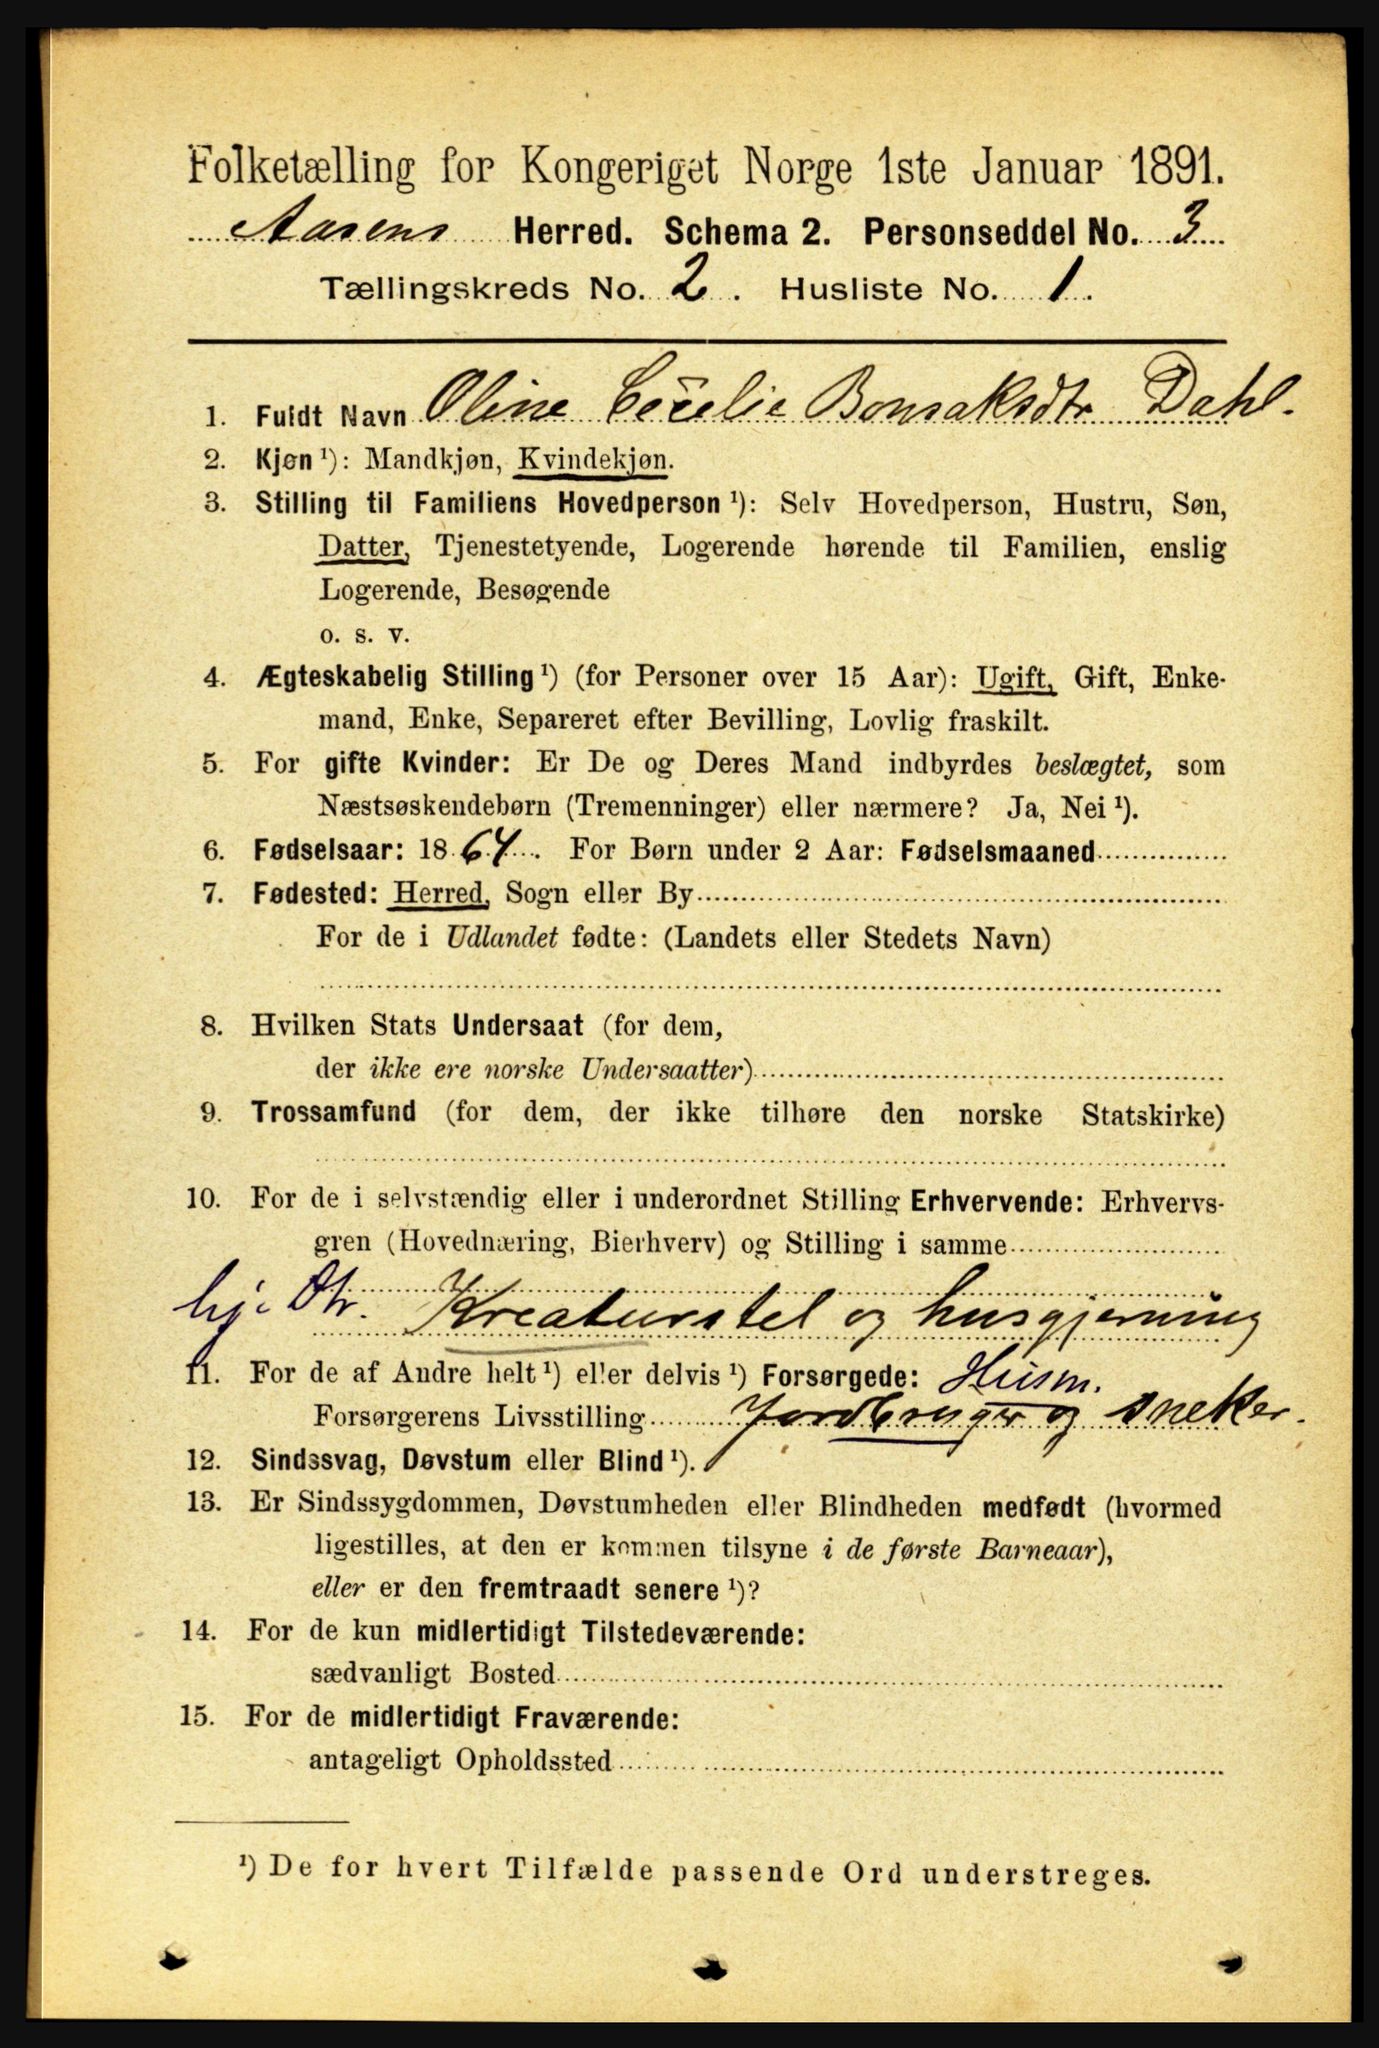 Folketælling for Kongeriget Norge 1ste Januar 1891.
Aasens Herred. Schema 2. Personseddel No. 3
Tællingskreds No. 2. Husliste No. 1.
1. Fuldt Navn Oline Cecelie Bonsaksdtr Dahl.
2. Kjøn ¹): Mandkjøn, Kvindekjøn.
3. Stilling til Familiens Hovedperson ¹): Selv Hovedperson, Hustru, Søn,
Datter, Tjenestetyende, Logerende hørende til Familien, enslig
Logerende, Besøgende
o. s. v.
4. Ægteskabelig Stilling ¹) (for Personer over 15 Aar): Ugift, Gift, Enke-
mand, Enke, Separeret efter Bevilling, Lovlig fraskilt.
5. For gifte Kvinder: Er De og Deres Mand indbyrdes beslægtet, som
Næstsøskendebørn (Tremenninger) eller nærmere? Ja, Nei ¹).
6. Fødselsaar: 1864. For Børn under 2 Aar: Fødselsmaaned
7. Fødested: Herred, Sogn eller By
For de i Udlandet fødte: (Landets eller Stedets Navn)
8. Hvilken Stats Undersaat (for dem,
der ikke ere norske Undersaatter)
9. Trossamfund (for dem, der ikke tilhøre den norske Statskirke)
10. For de i selvstændig eller i underordnet Stilling Erhvervende: Erhvervs-
gren (Hovednæring, Bierhverv) og Stilling i samme
hj. Dtr. Kreaturstel og husgjerning
11. For de af Andre helt ¹) eller delvis ¹) Forsørgede: Husm.
Forsørgerens Livsstilling Jordbruger og sneker.
12. Sindssvag, Døvstum eller Blind ¹).
13. Er Sindssygdommen, Døvstumheden eller Blindheden medfødt (hvormed
ligestilles, at den er kommen tilsyne i de første Barneaar),
eller er den fremtraadt senere ¹)?
14. For de kun midlertidigt Tilstedeværende:
sædvanligt Bosted
15. For de midlertidigt Fraværende:
antageligt Opholdssted
¹) De for hvert Tilfælde passende Ord understreges.